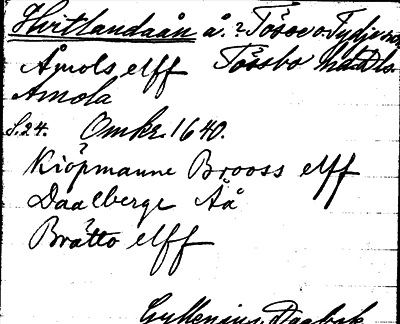 Hvitlandaån å. ? Tössö o Tydje snr
Åmols elff Tössbo härad
Amola
S. 24. Omkr. 1640.
Kiöpmanne Brooss elff
Daalberge Åå
Brätto elff
Gyllenius, Dagbok